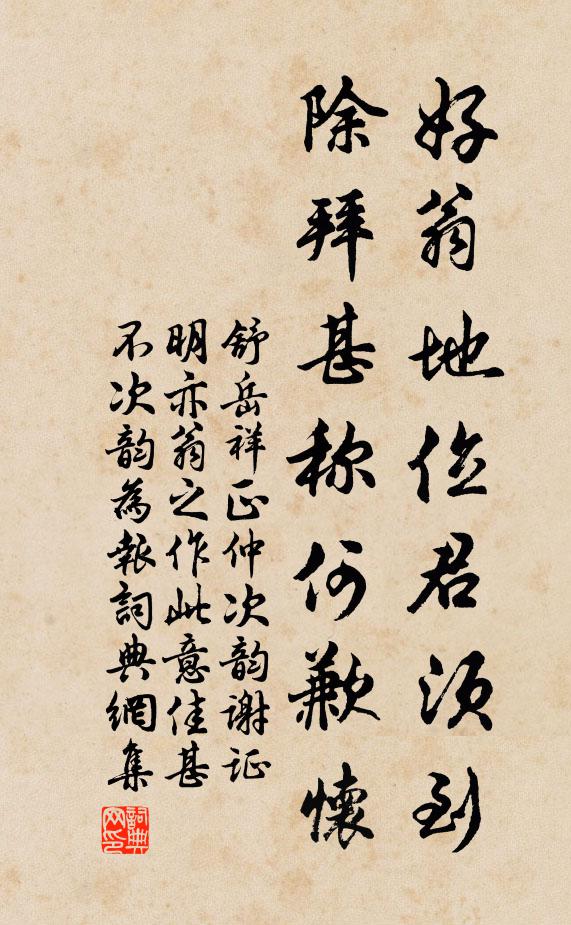 好翁地位君须到
除拜甚称何歉懷
舒岳祥正仲次韵谢证
明亦翁之作此意佳甚
不次韵為報詞典網集
詞典
网印